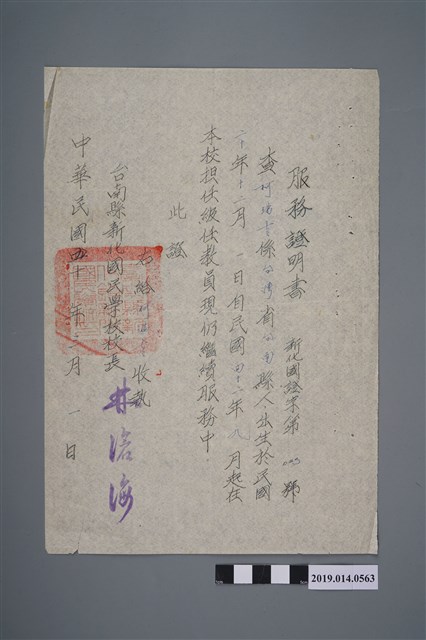 服務證明書
新化國證字第 號
查 係台灣省台南縣人出生於民國
二十年十二月一日自民國四十二年九月起在
本校担任級任教員現仍繼續服務中
此證
右給 收執
台南縣新化國民學校校長
林滄海
中華民國五十年二月一日
2019.014.0563